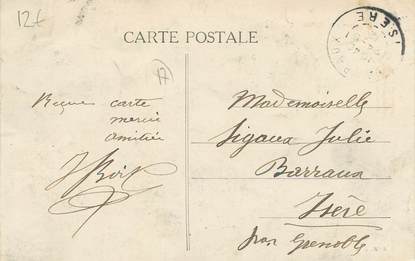 12€
CARTE POSTALE
ISÈRE
Reçue carte
merci
amitiés
Mademoiselle
Sigaux Julie
Barraux
Isère
par Grenoble